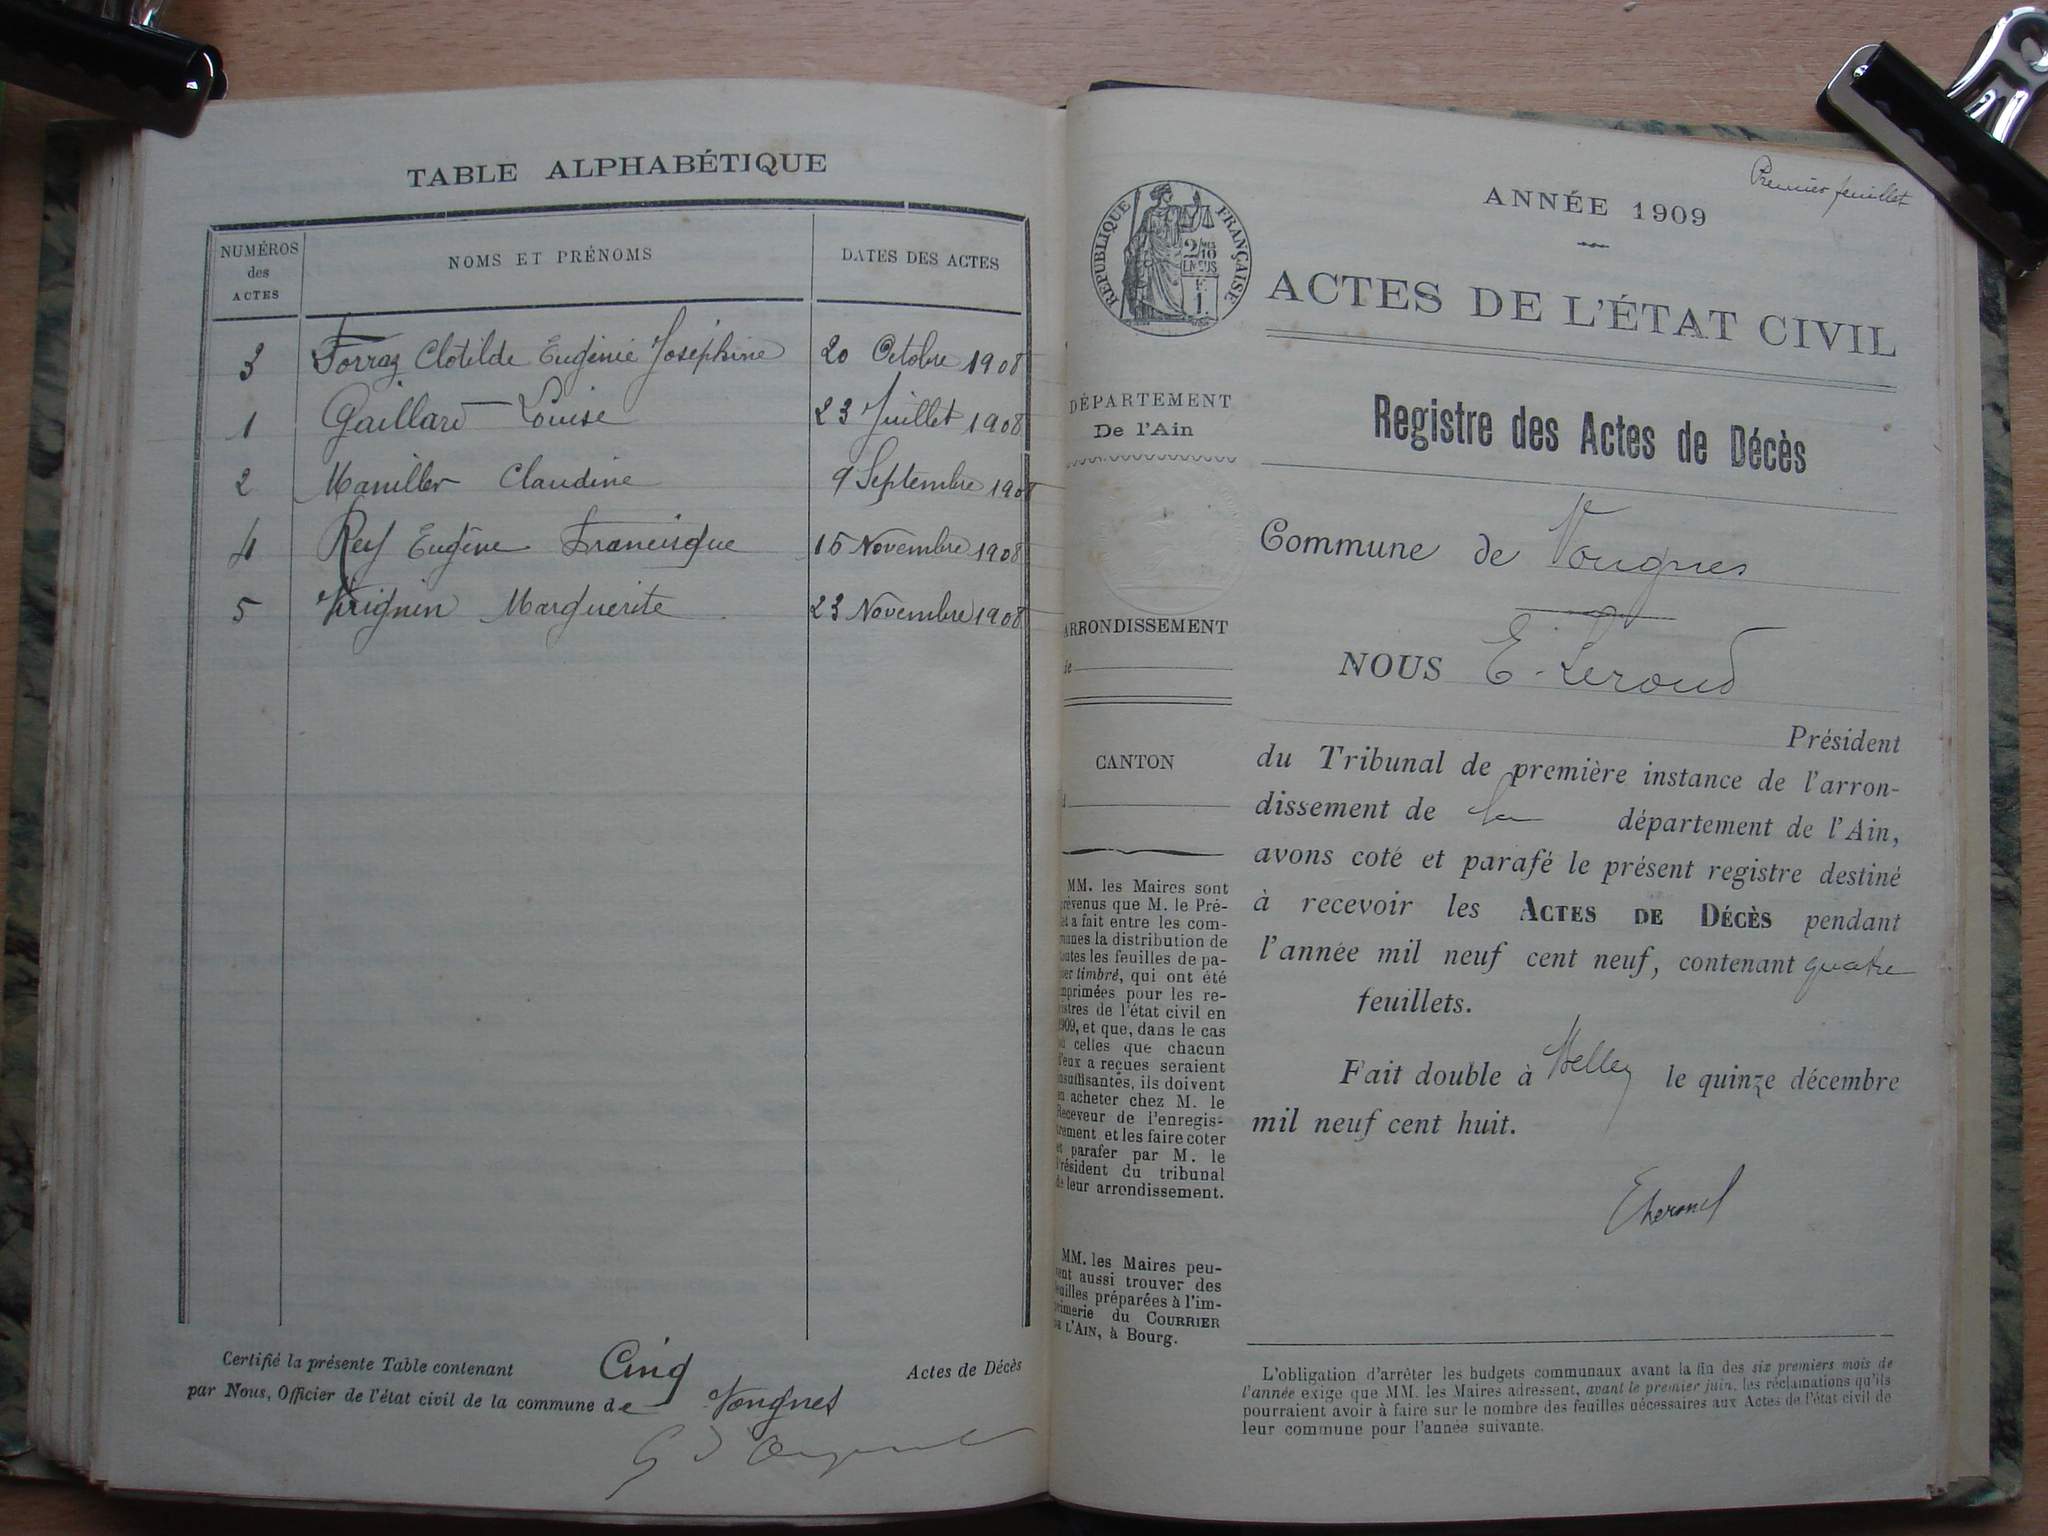 TABLE ALPHABÉTIQUE
NUMÉROS des ACTES
NOMS ET PRÉNOMS
DATES DES ACTES
3 Forraz Clotilde Eugénie Joséphine 20 Octobre 1908
1 Gaillard Louise 23 Juillet 1908
2 Manillier Claudine 9 Septembre 1908
4 Rey Eugène Francisque 15 Novembre 1908
5 Virignin Marguerite 23 Novembre 1908
Certifié la présente Table contenant Cinq Actes de Décès
par Nous, Officier de l'état civil de la commune de Vongnes
Premier feuillet
RÉPUBLIQUE FRANÇAISE
2/10 EN SUS
F. 1.
ANNÉE 1909
ACTES DE L'ÉTAT CIVIL
DÉPARTEMENT
De l'Ain
ARRONDISSEMENT
de
CANTON
MM. les Maires sont
prévenus que M. le Pré-
fet a fait entre les com-
munes la distribution de
toutes les feuilles de pa-
pier timbré, qui ont été
imprimées pour les re-
gistres de l'état civil en
1909, et que, dans le cas
où celles que chacun
d'eux a reçues seraient
insuffisantes, ils doivent
en acheter chez M. le
Receveur de l'enregis-
trement et les faire coter
et parafer par M. le
Président du tribunal
de leur arrondissement.
MM. les Maires peu-
vent aussi trouver des
feuilles préparées à l'im-
primerie du COURRIER
DE L'AIN, à Bourg.
Registre des Actes de Décès
Commune de Vongnes
NOUS E. Leroud
Président
du Tribunal de première instance de l'arron-
dissement de département de l'Ain,
avons coté et parafé le présent registre destiné
à recevoir les ACTES DE DÉCÈS pendant
l'année mil neuf cent neuf, contenant quatre
feuillets.
Fait double à Belley le quinze décembre
mil neuf cent huit.
L'obligation d'arrêter les budgets communaux avant la fin des six premiers mois de
l'année exige que MM. les Maires adressent, avant le premier juin, les réclamations qu'ils
pourraient avoir à faire sur le nombre des feuilles nécessaires aux Actes de l'état civil de
leur commune pour l'année suivante.